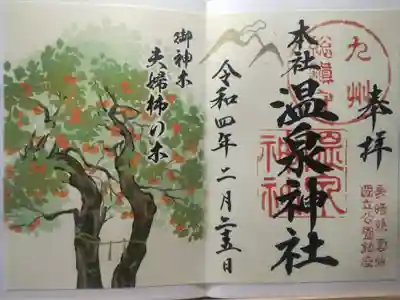 奉拝
九州
総鎮守
本社
温泉神社
温泉
神社
令和四年二月二十五日
御神木
夫婦柿の木
国立公園